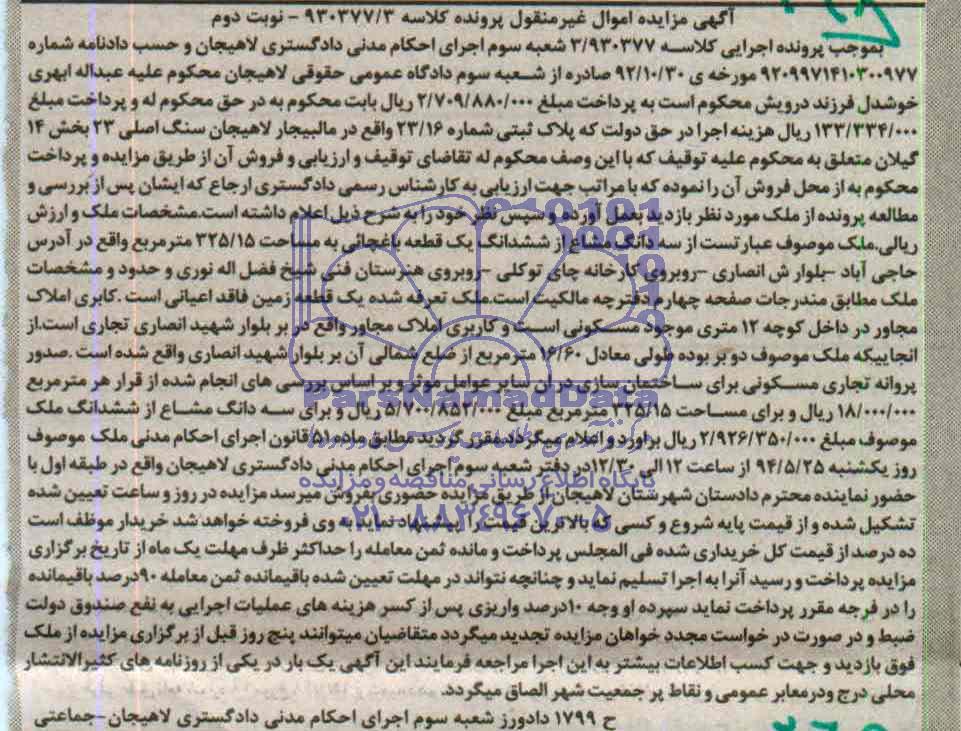 آگهی مزایده اموال غیرمنقول پرونده کلاسه ۹۳۰۳۷۷/۳ - نوبت دوم
بموجب پرونده اجرایی کلاسه ۳/۹۳۰۳۷۷ شعبه سوم اجرای احکام مدنی دادگستری لاهیجان و حسب دادنامه شماره
۹۲۰۹۹۷۱۴۱۰۳۰۰۹۷۷ مورخه ی ۹۲/۱۰/۳۰ صادره از شعبه سوم دادگاه عمومی حقوقی لاهیجان محکوم علیه عبداله ابهری
خوشدل فرزند درویش محکوم است به پرداخت مبلغ ۲/۷۰۹/۸۸۰/۰۰۰ ریال بابت محکوم به در حق محکوم له و پرداخت مبلغ
۱۳۳/۳۳۴/۰۰۰ ریال هزینه اجرا در حق دولت که پلاک ثبتی شماره ۲۳/۱۶ واقع در مالبیجار لاهیجان سنگ اصلی ۲۳ بخش ۱۴
گیلان متعلق به محکوم علیه توقیف که با این وصف محکوم له تقاضای توقیف و ارزیابی و فروش آن از طریق مزایده و پرداخت
محکوم به از محل فروش آن را نموده که با مراتب جهت ارزیابی به کارشناس رسمی دادگستری ارجاع که ایشان پس از بررسی و
مطالعه پرونده از ملک مورد نظر بازدید بعمل آورده و سپس نظر خود را به شرح ذیل اعلام داشته است.مشخصات ملک و ارزش
ریالی.ملک موصوف عبارتست از سه دانگ مشاع از ششدانگ یک قطعه باغچائی به مساحت ۳۲۵/۱۵ مترمربع واقع در آدرس
حاجی آباد -بلوار ش انصاری -روبروی کارخانه چای توکلی -روبروی هنرستان فنی شیخ فضل اله نوری و حدود و مشخصات
ملک مطابق مندرجات صفحه چهارم دفترچه مالکیت است.ملک تعرفه شده یک قطعه زمین فاقد اعیانی است .کابری املاک
مجاور در داخل کوچه ۱۲ متری موجود مسکونی است و کاربری املاک مجاور واقع در بر بلوار شهید انصاری تجاری است.از
انجاییکه ملک موصوف دو بر بوده طولی معادل ۱۶/۶۰ مترمربع از ضلع شمالی آن بر بلوار شهید انصاری واقع شده است .صدور
پروانه تجاری مسکونی برای ساختمان سازی در ان سایر عوامل موثر و بر اساس بررسی های انجام شده از قرار هر مترمربع
۱۸/۰۰۰/۰۰۰ ریال و برای مساحت ۳۲۵/۱۵ مترمربع مبلغ ۵/۷۰۰/۸۵۲/۰۰۰ ریال و برای سه دانگ مشاع از ششدانگ ملک
موصوف مبلغ ۲/۹۲۶/۳۵۰/۰۰۰ ریال براورد و اعلام میگردد.مقرر گردید مطابق ماده ۵۱ قانون اجرای احکام مدنی ملک موصوف
روز یکشنبه ۹۴/۵/۲۵ از ساعت ۱۲ الی ۱۲/۳۰در دفتر شعبه سوم اجرای احکام مدنی دادگستری لاهیجان واقع در طبقه اول با
حضور نماینده محترم دادستان شهرستان لاهیجان از طریق مزایده حضوری بفروش میرسد مزایده در روز و ساعت تعیین شده
تشکیل شده و از قیمت پایه شروع و کسی که بالاترین قیمت را پیشنهاد نماید به وی فروخته خواهد شد خریدار موظف است
ده درصد از قیمت کل خریداری شده فی المجلس پرداخت و مانده ثمن معامله را حداکثر ظرف مهلت یک ماه از تاریخ برگزاری
مزایده پرداخت و رسید آنرا به اجرا تسلیم نماید و چنانچه نتواند در مهلت تعیین شده باقیمانده ثمن معامله ۹۰درصد باقیمانده
را در فرجه مقرر پرداخت نماید سپرده او وجه ۱۰درصد واریزی پس از کسر هزینه های عملیات اجرایی به نفع صندوق دولت
ضبط و در صورت در خواست مجدد خواهان مزایده تجدید میگردد متقاضیان میتوانند پنج روز قبل از برگزاری مزایده از ملک
فوق بازدید و جهت کسب اطلاعات بیشتر به این اجرا مراجعه فرمایند این آگهی یک بار در یکی از روزنامه های کثیرالانتشار
محلی درج ودرمعابر عمومی و نقاط پر جمعیت شهر الصاق میگردد.
ح ۱۷۹۹ دادورز شعبه سوم اجرای احکام مدنی دادگستری لاهیجان-جماعتی
ParsNamadData
پایگاه اطلاع رسانی مناقصه و مزایده
۰۲۱-۸۸۳۴۹۶۷۰-۵